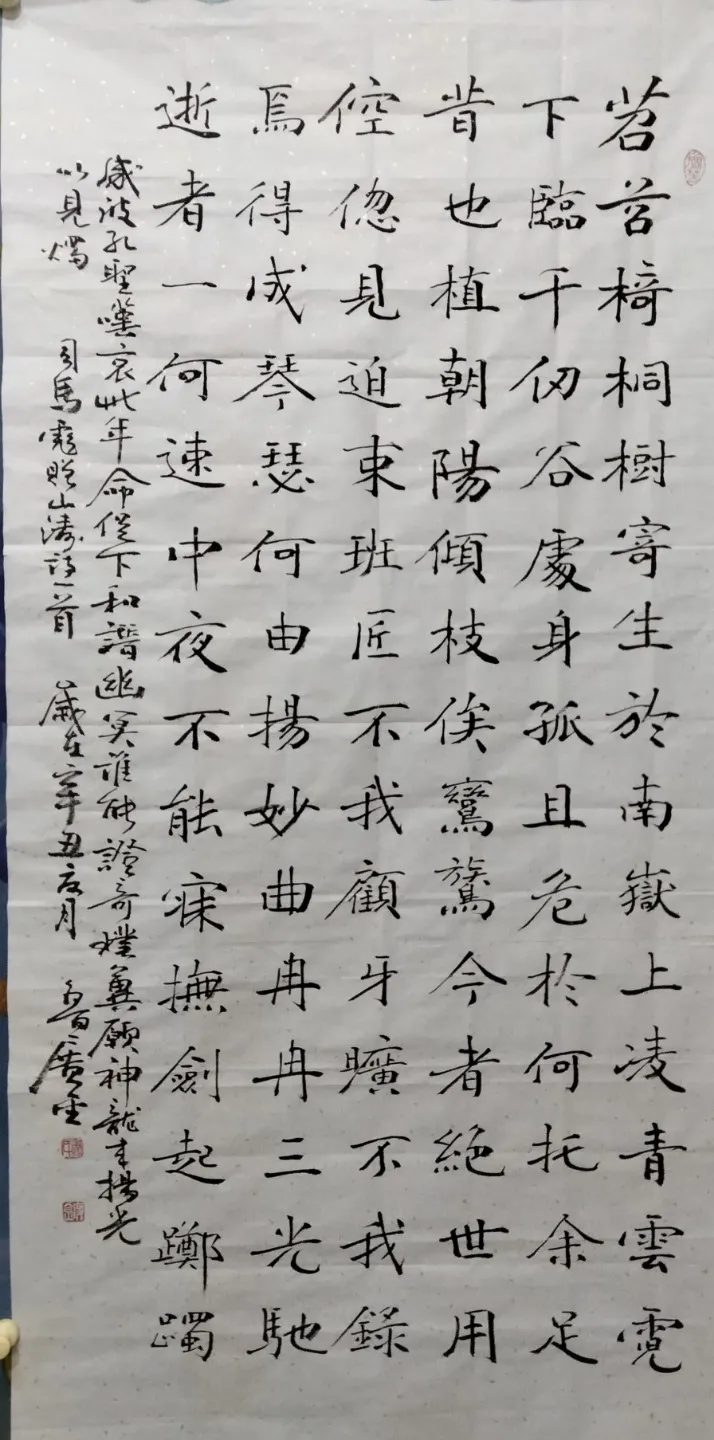 苕苕椅桐樹寄生於南嶽上凌青雲霓
下臨千仞谷處身孤且危於何托余足
昔也植朝陽傾枝俟鸞鷟今者絕世用
倥偬見迫束班匠不我顧牙曠不我錄
焉得成琴瑟何由揚妙曲冉冉三光馳
逝者一何速中夜不能寐撫劍起躑躅
感彼孔聖嘆哀此年命促卞和潛幽冥誰能證奇璞冀願神龍来揚光
以見燭 司馬彪贈山濤詩一首 歲在辛丑夏月 魯廣雲